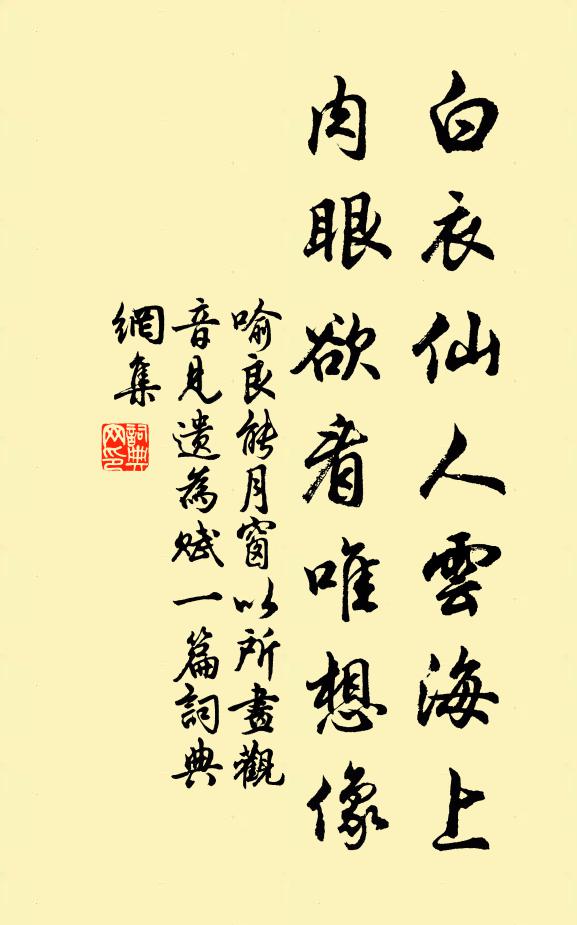 白衣仙人雲海上
肉眼欲看唯想像
喻良能月窗以所畫觀
音見遺為賦一篇詞典
網集
詞典
网印